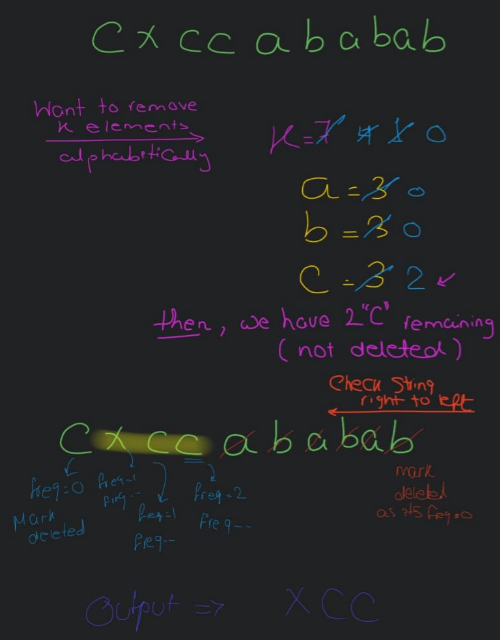 C x c c a b a b a b
Want to remove
K elements
alphabitically
K = 7 4 1 0
a = 3 0
b = 3 0
C = 3 2
then, we have 2 "C" remaining
(not deleted)
Check String
right to left
C x c c a b a b a b
freq=0
Mark
deleted
freq=1
freq--
freq=1
freq--
freq=2
freq--
mark
deleted
as its freq=0
Output => X C C